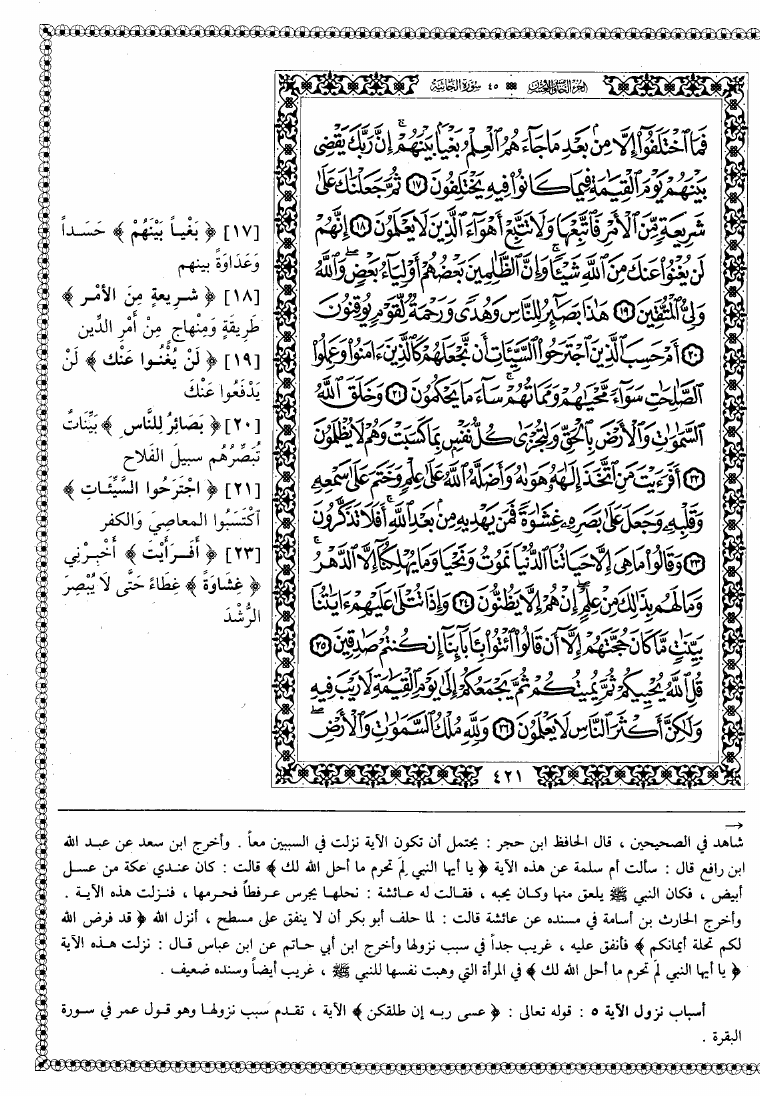 الجزء الخامس والعشرون ٤٥ سورة الجاثية
فَمَا اخْتَلَفُوا إِلَّا مِنْ بَعْدِ مَا جَاءَهُمُ الْعِلْمُ بَغْيًا بَيْنَهُمْ إِنَّ رَبَّكَ يَقْضِي
بَيْنَهُمْ يَوْمَ الْقِيَٰمَةِ فِيمَا كَانُوا فِيهِ يَخْتَلِفُونَ ١٧ ثُمَّ جَعَلْنَٰكَ عَلَىٰ
شَرِيعَةٍ مِّنَ الْأَمْرِ فَاتَّبِعْهَا وَلَا تَتَّبِعْ أَهْوَاءَ الَّذِينَ لَا يَعْلَمُونَ ١٨ إِنَّهُمْ
لَن يُغْنُوا عَنكَ مِنَ اللَّهِ شَيْئًا وَإِنَّ الظَّٰلِمِينَ بَعْضُهُمْ أَوْلِيَاءُ بَعْضٍ وَاللَّهُ
وَلِيُّ الْمُتَّقِينَ ١٩ هَٰذَا بَصَٰئِرُ لِلنَّاسِ وَهُدًى وَرَحْمَةٌ لِّقَوْمٍ يُوقِنُونَ
٢٠ أَمْ حَسِبَ الَّذِينَ اجْتَرَحُوا السَّيِّئَاتِ أَن نَّجْعَلَهُمْ كَالَّذِينَ ءَامَنُوا وَعَمِلُوا
الصَّٰلِحَٰتِ سَوَاءً مَّحْيَاهُمْ وَمَمَاتُهُمْ سَاءَ مَا يَحْكُمُونَ ٢١ وَخَلَقَ اللَّهُ
السَّمَٰوَٰتِ وَالْأَرْضَ بِالْحَقِّ وَلِتُجْزَىٰ كُلُّ نَفْسٍ بِمَا كَسَبَتْ وَهُمْ لَا يُظْلَمُونَ
٢٢ أَفَرَءَيْتَ مَنِ اتَّخَذَ إِلَٰهَهُ هَوَىٰهُ وَأَضَلَّهُ اللَّهُ عَلَىٰ عِلْمٍ وَخَتَمَ عَلَىٰ سَمْعِهِ
وَقَلْبِهِ وَجَعَلَ عَلَىٰ بَصَرِهِ غِشَٰوَةً فَمَن يَهْدِيهِ مِن بَعْدِ اللَّهِ أَفَلَا تَذَكَّرُونَ
٢٣ وَقَالُوا مَا هِيَ إِلَّا حَيَاتُنَا الدُّنْيَا نَمُوتُ وَنَحْيَا وَمَا يُهْلِكُنَا إِلَّا الدَّهْرُ
وَمَا لَهُم بِذَٰلِكَ مِنْ عِلْمٍ إِنْ هُمْ إِلَّا يَظُنُّونَ ٢٤ وَإِذَا تُتْلَىٰ عَلَيْهِمْ ءَايَٰتُنَا
بَيِّنَٰتٍ مَّا كَانَ حُجَّتَهُمْ إِلَّا أَن قَالُوا ائْتُوا بِـَٔابَائِنَا إِن كُنتُمْ صَٰدِقِينَ ٢٥
قُلِ اللَّهُ يُحْيِيكُمْ ثُمَّ يُمِيتُكُمْ ثُمَّ يَجْمَعُكُمْ إِلَىٰ يَوْمِ الْقِيَٰمَةِ لَا رَيْبَ فِيهِ
وَلَٰكِنَّ أَكْثَرَ النَّاسِ لَا يَعْلَمُونَ ٢٦ وَلِلَّهِ مُلْكُ السَّمَٰوَٰتِ وَالْأَرْضِ
٤٢١
[١٧] ﴿ بَغْياً بَيْنَهُمْ ﴾ حَسَداً
وَعَدَاوَةً بينهم
[١٨] ﴿ شريعةٍ مِنَ الأمْرِ ﴾
طَرِيقَةٍ وَمِنْهاجٍ مِنْ أَمْرِ الدِّين
[١٩] ﴿ لَنْ يُغْنُوا عَنْك ﴾ لَنْ
يَدْفَعُوا عَنْكَ
[٢٠] ﴿ بَصَائِرُ لِلنَّاسِ ﴾ بَيِّنَاتٌ
تُبَصِّرُهُم سبيلَ الفَلاح
[٢١] ﴿ اجْتَرَحُوا السَّيِّئَاتِ ﴾
اكْتَسَبُوا المعاصِيَ والكفر
[٢٣] ﴿ أَفَرَأَيْتَ ﴾ أَخْبِرْنِي
﴿ غِشَاوَةً ﴾ غِطَاءً حَتَّى لَا يُبْصِرَ
الرُّشْدَ
→
شاهد في الصحيحين ، قال الحافظ ابن حجر : يحتمل أن تكون الآية نزلت في السببين معاً . وأخرج ابن سعد عن عبد الله
ابن رافع قال : سألت أم سلمة عن هذه الآية ﴿ يا أيها النبي لِمَ تحرم ما أحل الله لك ﴾ قالت : كان عندي عكة من عسل
أبيض ، فكان النبي ﷺ يلعق منها وكان يحبه ، فقالت له عائشة : نحلها يجرس عرفطاً فحرمها ، فنزلت هذه الآية .
وأخرج الحارث بن أسامة في مسنده عن عائشة قالت : لما حلف أبو بكر أن لا ينفق على مسطح ، أنزل الله ﴿ قد فرض الله
لكم تحلة أيمانكم ﴾ فأنفق عليه ، غريب جداً في سبب نزولها وأخرج ابن أبي حاتم عن ابن عباس قال : نزلت هذه الآية
﴿ يا أيها النبي لمَ تحرم ما أحل الله لك ﴾ في المرأة التي وهبت نفسها للنبي ﷺ ، غريب أيضاً وسنده ضعيف .
أسباب نزول الآية ٥ : قوله تعالى : ﴿ عسى ربه إن طلقكن ﴾ الآية ، تقدم سبب نزولها وهو قول عمر في سورة
البقرة .